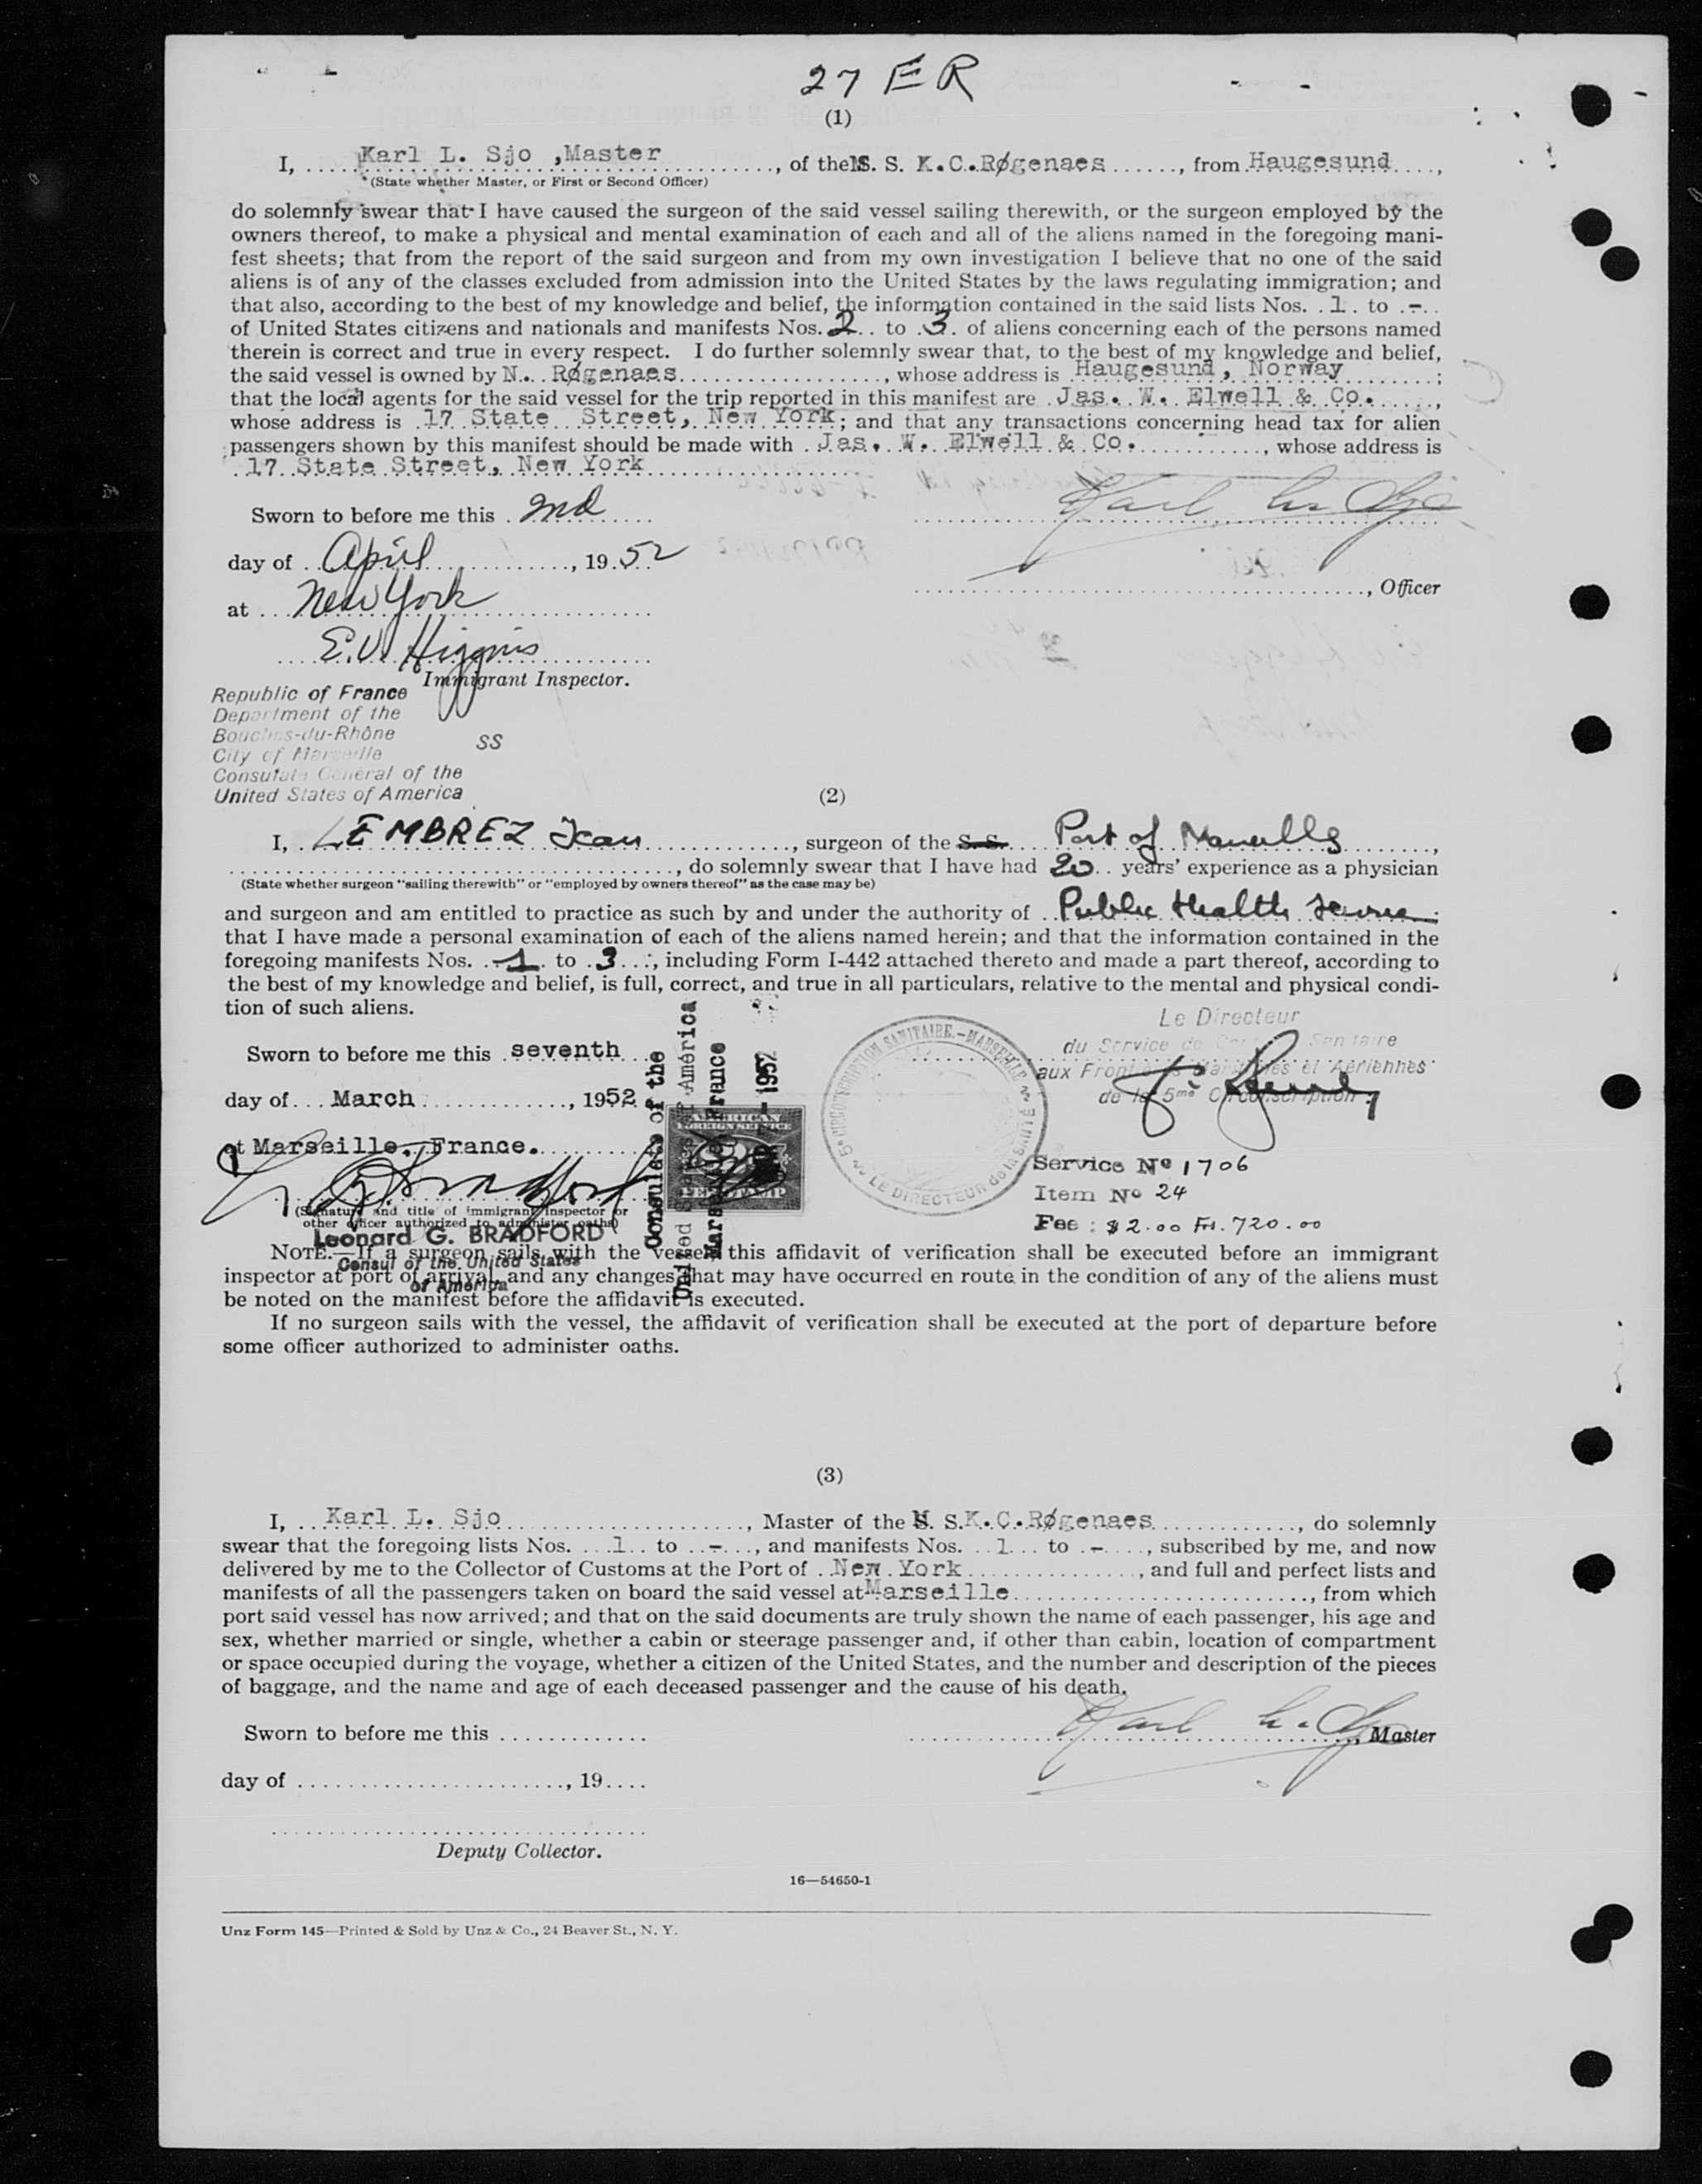 27 ER
(1)
I, Karl L. Sjo ,Master, of the M. S. K.C.Røgenaes, from Haugesund,
(State whether Master, or First or Second Officer)
do solemnly swear that I have caused the surgeon of the said vessel sailing therewith, or the surgeon employed by the
owners thereof, to make a physical and mental examination of each and all of the aliens named in the foregoing mani-
fest sheets; that from the report of the said surgeon and from my own investigation I believe that no one of the said
aliens is of any of the classes excluded from admission into the United States by the laws regulating immigration; and
that also, according to the best of my knowledge and belief, the information contained in the said lists Nos. 1 to -
of United States citizens and nationals and manifests Nos. 2 to 3 of aliens concerning each of the persons named
therein is correct and true in every respect. I do further solemnly swear that, to the best of my knowledge and belief,
the said vessel is owned by N. Røgenaes, whose address is Haugesund, Norway;
that the local agents for the said vessel for the trip reported in this manifest are Jas. W. Elwell & Co.,
whose address is 17 State Street, New York; and that any transactions concerning head tax for alien
passengers shown by this manifest should be made with Jas. W. Elwell & Co., whose address is
17 State Street, New York
Sworn to before me this 2nd
Karl L. Sjo
day of April, 1952
, Officer
at New York
E.V. Higgins
Immigrant Inspector.
Republic of France
Department of the
Bouches-du-Rhône
City of Marseille
SS
Consulate General of the
United States of America
(2)
I, LEMBREZ Jean, surgeon of the S. S. Port of Marseille,
, do solemnly swear that I have had 20 years' experience as a physician
(State whether surgeon "sailing therewith" or "employed by owners thereof" as the case may be)
and surgeon and am entitled to practice as such by and under the authority of Public Health Service;
that I have made a personal examination of each of the aliens named herein; and that the information contained in the
foregoing manifests Nos. 1 to 3, including Form I-442 attached thereto and made a part thereof, according to
the best of my knowledge and belief, is full, correct, and true in all particulars, relative to the mental and physical condi-
tion of such aliens.
Le Directeur
du Service de Contrôle Sanitaire
aux Frontières Maritimes et Aériennes
de la 5me Circonscription
Sworn to before me this seventh
day of March, 1952
at Marseille, France.
(Signature and title of immigrant inspector or
other officer authorized to administer oaths)
Leonard G. BRADFORD
Consul of the United States
of America
Consulate of the
United States of América
Marseille, France
MAR 7 - 1952
AMERICAN
FOREIGN SERVICE
FEE STAMP
5e CIRCONSCRIPTION SANITAIRE.-MARSEILLE
LE DIRECTEUR de la SANTÉ
Service No 1706
Item No 24
Fee : $2.00 Frs. 720.00
NOTE.—If a surgeon sails with the vessel, this affidavit of verification shall be executed before an immigrant
inspector at port of arrival, and any changes that may have occurred en route in the condition of any of the aliens must
be noted on the manifest before the affidavit is executed.
If no surgeon sails with the vessel, the affidavit of verification shall be executed at the port of departure before
some officer authorized to administer oaths.
(3)
I, Karl L. Sjo, Master of the M. S. K.C.Røgenaes, do solemnly
swear that the foregoing lists Nos. 1 to -, and manifests Nos. 1 to -, subscribed by me, and now
delivered by me to the Collector of Customs at the Port of New York, and full and perfect lists and
manifests of all the passengers taken on board the said vessel at Marseille, from which
port said vessel has now arrived; and that on the said documents are truly shown the name of each passenger, his age and
sex, whether married or single, whether a cabin or steerage passenger and, if other than cabin, location of compartment
or space occupied during the voyage, whether a citizen of the United States, and the number and description of the pieces
of baggage, and the name and age of each deceased passenger and the cause of his death.
Sworn to before me this
Karl L. Sjo, Master
day of , 19
Deputy Collector.
16—54650-1
Unz Form 145—Printed & Sold by Unz & Co., 24 Beaver St., N. Y.